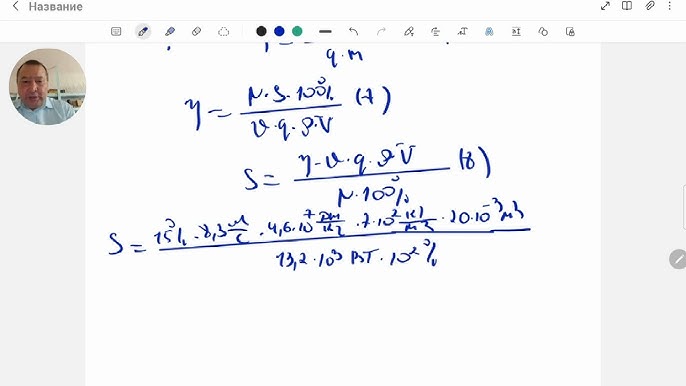 Название
q·m
η = N·S·100% / υ·q·ρ·V (7)
S = η·υ·q·ρ·V / N·100% (8)
S = 15%·8,3 м/с · 4,6·10⁷ Дж/кг · 7·10² кг/м³ · 20·10⁻³ м³ / 13,2·10³ Вт·10²%